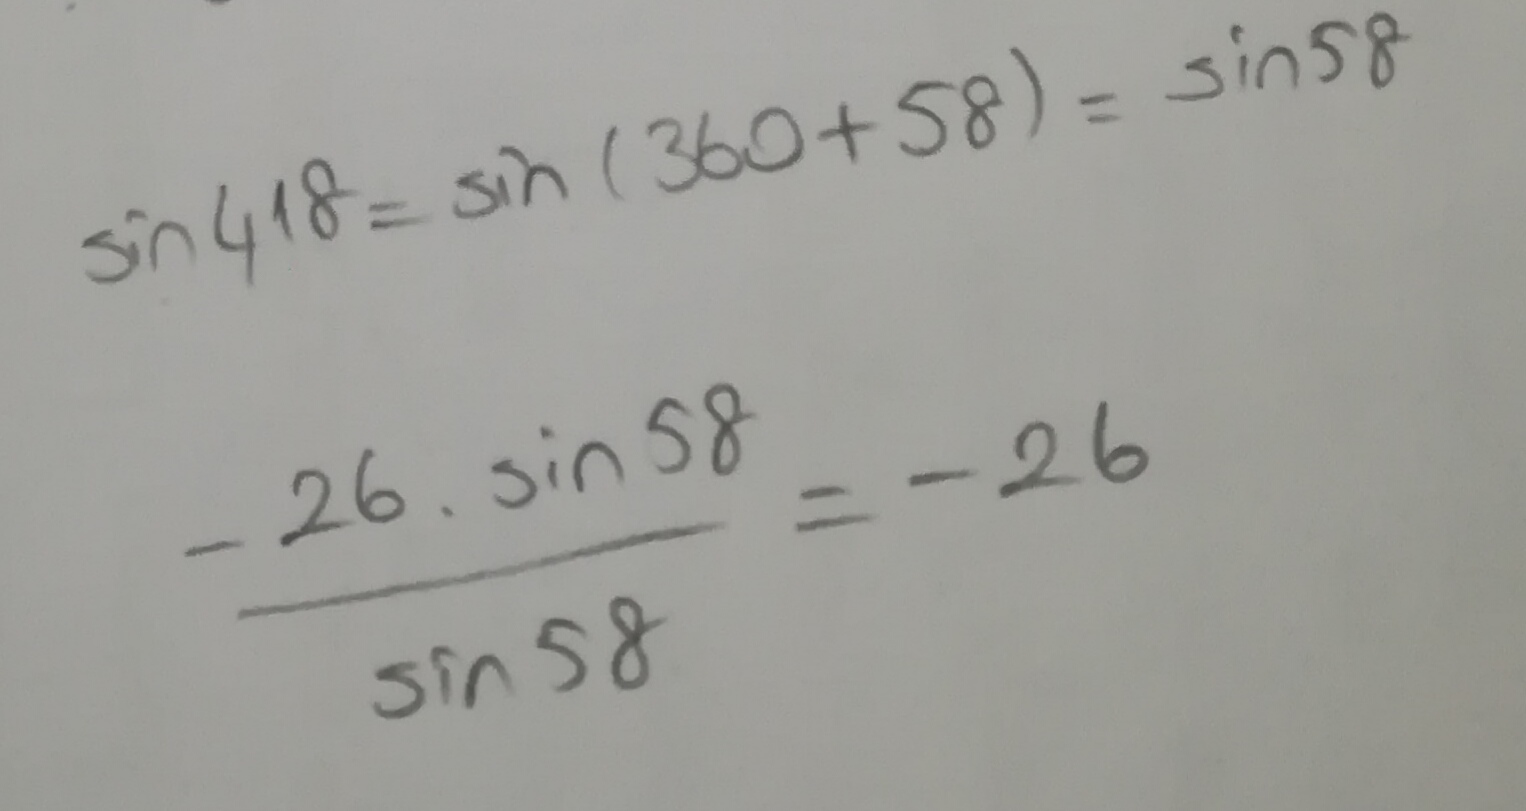 sin418 = sin (360+58) = sin58
-26 . sin58 = -26
sin58